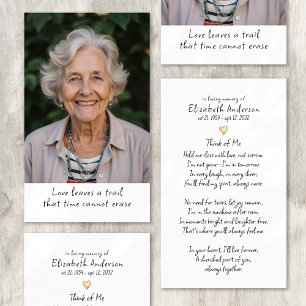 Love leaves a trail
that time cannot erase
Love leaves a trail
that time cannot erase
in loving memory of
Elizabeth Anderson
Think of Me
Hold me close with love, not sorrow,
I'm not gone—I'm in tomorrow.
In every laugh, in every cheer,
You'll find my spirit, always near.
No need for tears, let joy remain,
I'm in the sunshine after rain.
In moments bright and laughter free,
That's where you'll always find me.
In your heart, I'll live forever,
A cherished part of you,
always together.
in loving memory of
Elizabeth Anderson
Think of Me
Hold me close with love, not sorrow,